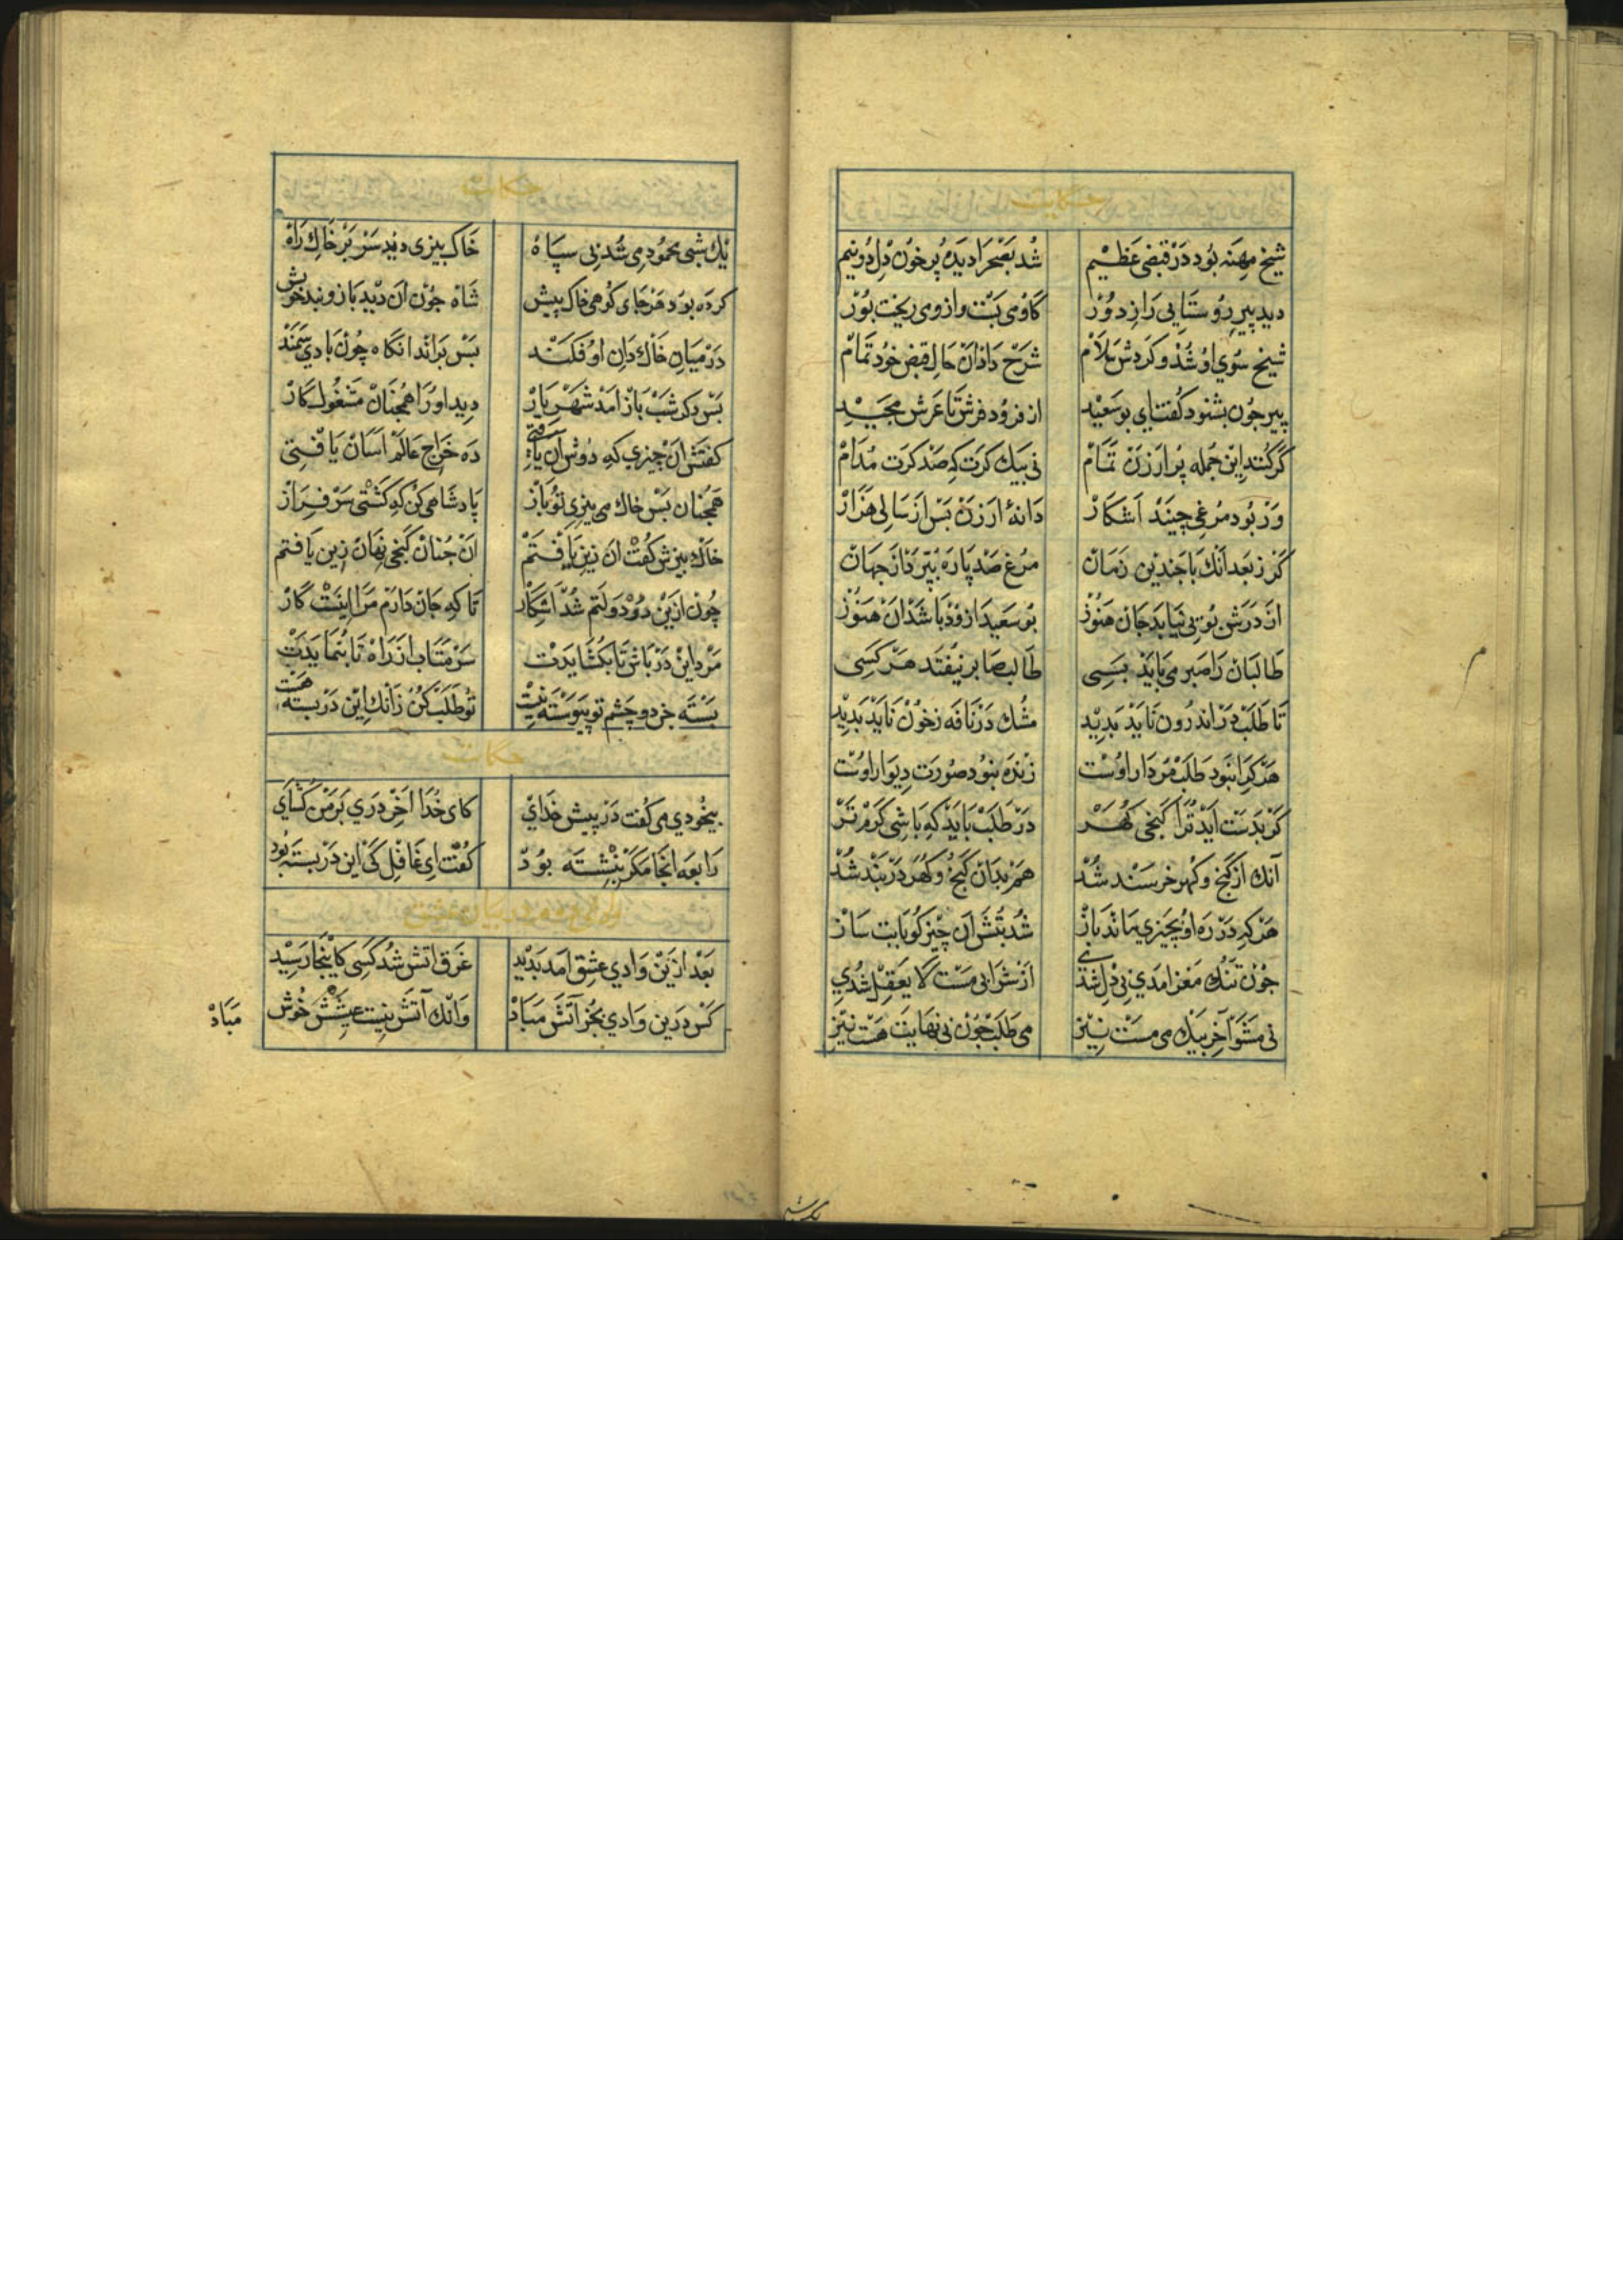 حکایت
شیخ مهنه بود در قبضی عظیم شد بصحرا دیده پر خون دل دو نیم
دید پیر روستایی را ز دور گاوی بست و از وی ریخت بور
شیخ سوی او شد و کردش سلام شرح داذ آن حال قبض خود تمام
پیر جون بشنود گفت ای بوسعید از فرود فرش تا عرش مجید
گر کنند این جمله پر ارزن تمام نی بیک کرت که صد کرت مدام
ور بود مرغی جیند آشکار دانهٔ ارزن بس از سالی هزار
کر ز بعد آنک با جندین زمان مرغ صد باره بپردازد جهان
از درش بویی نیابد جان هنوز بوسعیدا زود باشد آن هنوز
طالبان را صبر می باید بسی طالب صابر نیفتد هر کسی
تا طلب در اندرون ناید بدید مشک در نافه ز خون ناید بدید
هر کرا نبود طلب مردار اوست زنده نبود صورت دیوار اوست
کر بدست آید ترا کنجی کهر در طلب باید که باشی کرم تر
آنک از کنج و کهر خرسند شد هم بدان کنج و کهر در بند شد
هر که در ره او بجیزی ماند باز شد بتش آن چیز کو با بت ساز
جون تنک مغز آمدی بی دل شدی از شرابی مست لا یعقل شدی
نی مشو آخر بیک می مست نیز می طلب جون بی نهایت هست نیز
حکایت
یک شبی محمود می شد بی سپاه خاک بیزی دید سر بر خاک راه
کرده بود هر جای کوهی خاک پیش شاه جون آن دید بازوبند خویش
در میان خاک دان او فکند بس براند انکاه چون بادی سمند
بس دکر شب باز آمد شهریار دید او را همجنان مشغول کار
کفتش آن چیزی که دوش آن یافتی ده خراج عالم آسان یافتی
همجنان بس خاک می بیزی تو باز پادشاهی کن که کشتی سرفراز
خاک بیزش کفت آن زین یافتم آن جنان کنجی نهان زین یافتم
چون ازین در دولتم شد آشکار تا که جان دارم مرا اینست کار
مرد این در باش تا بکشایدت سر متاب از راه تا بنمایدت
بسته جز دو چشم تو پیوسته نیست تو طلب کن زانک این در بسته نیست
حکایت
بیخودی می کفت در پیش خدای کای خدا آخر دری بر من کشای
رابعه آنجا مکر بنشسته بود کفت ای غافل کی این در بسته بود
وادی دوم در بیان عشق
بعد ازین وادی عشق آمد بدید غرق آتش شد کسی کاینجا رسید
کس درین وادی بجز آتش مباد وانک آتش نیست عیشش خوش
مباد